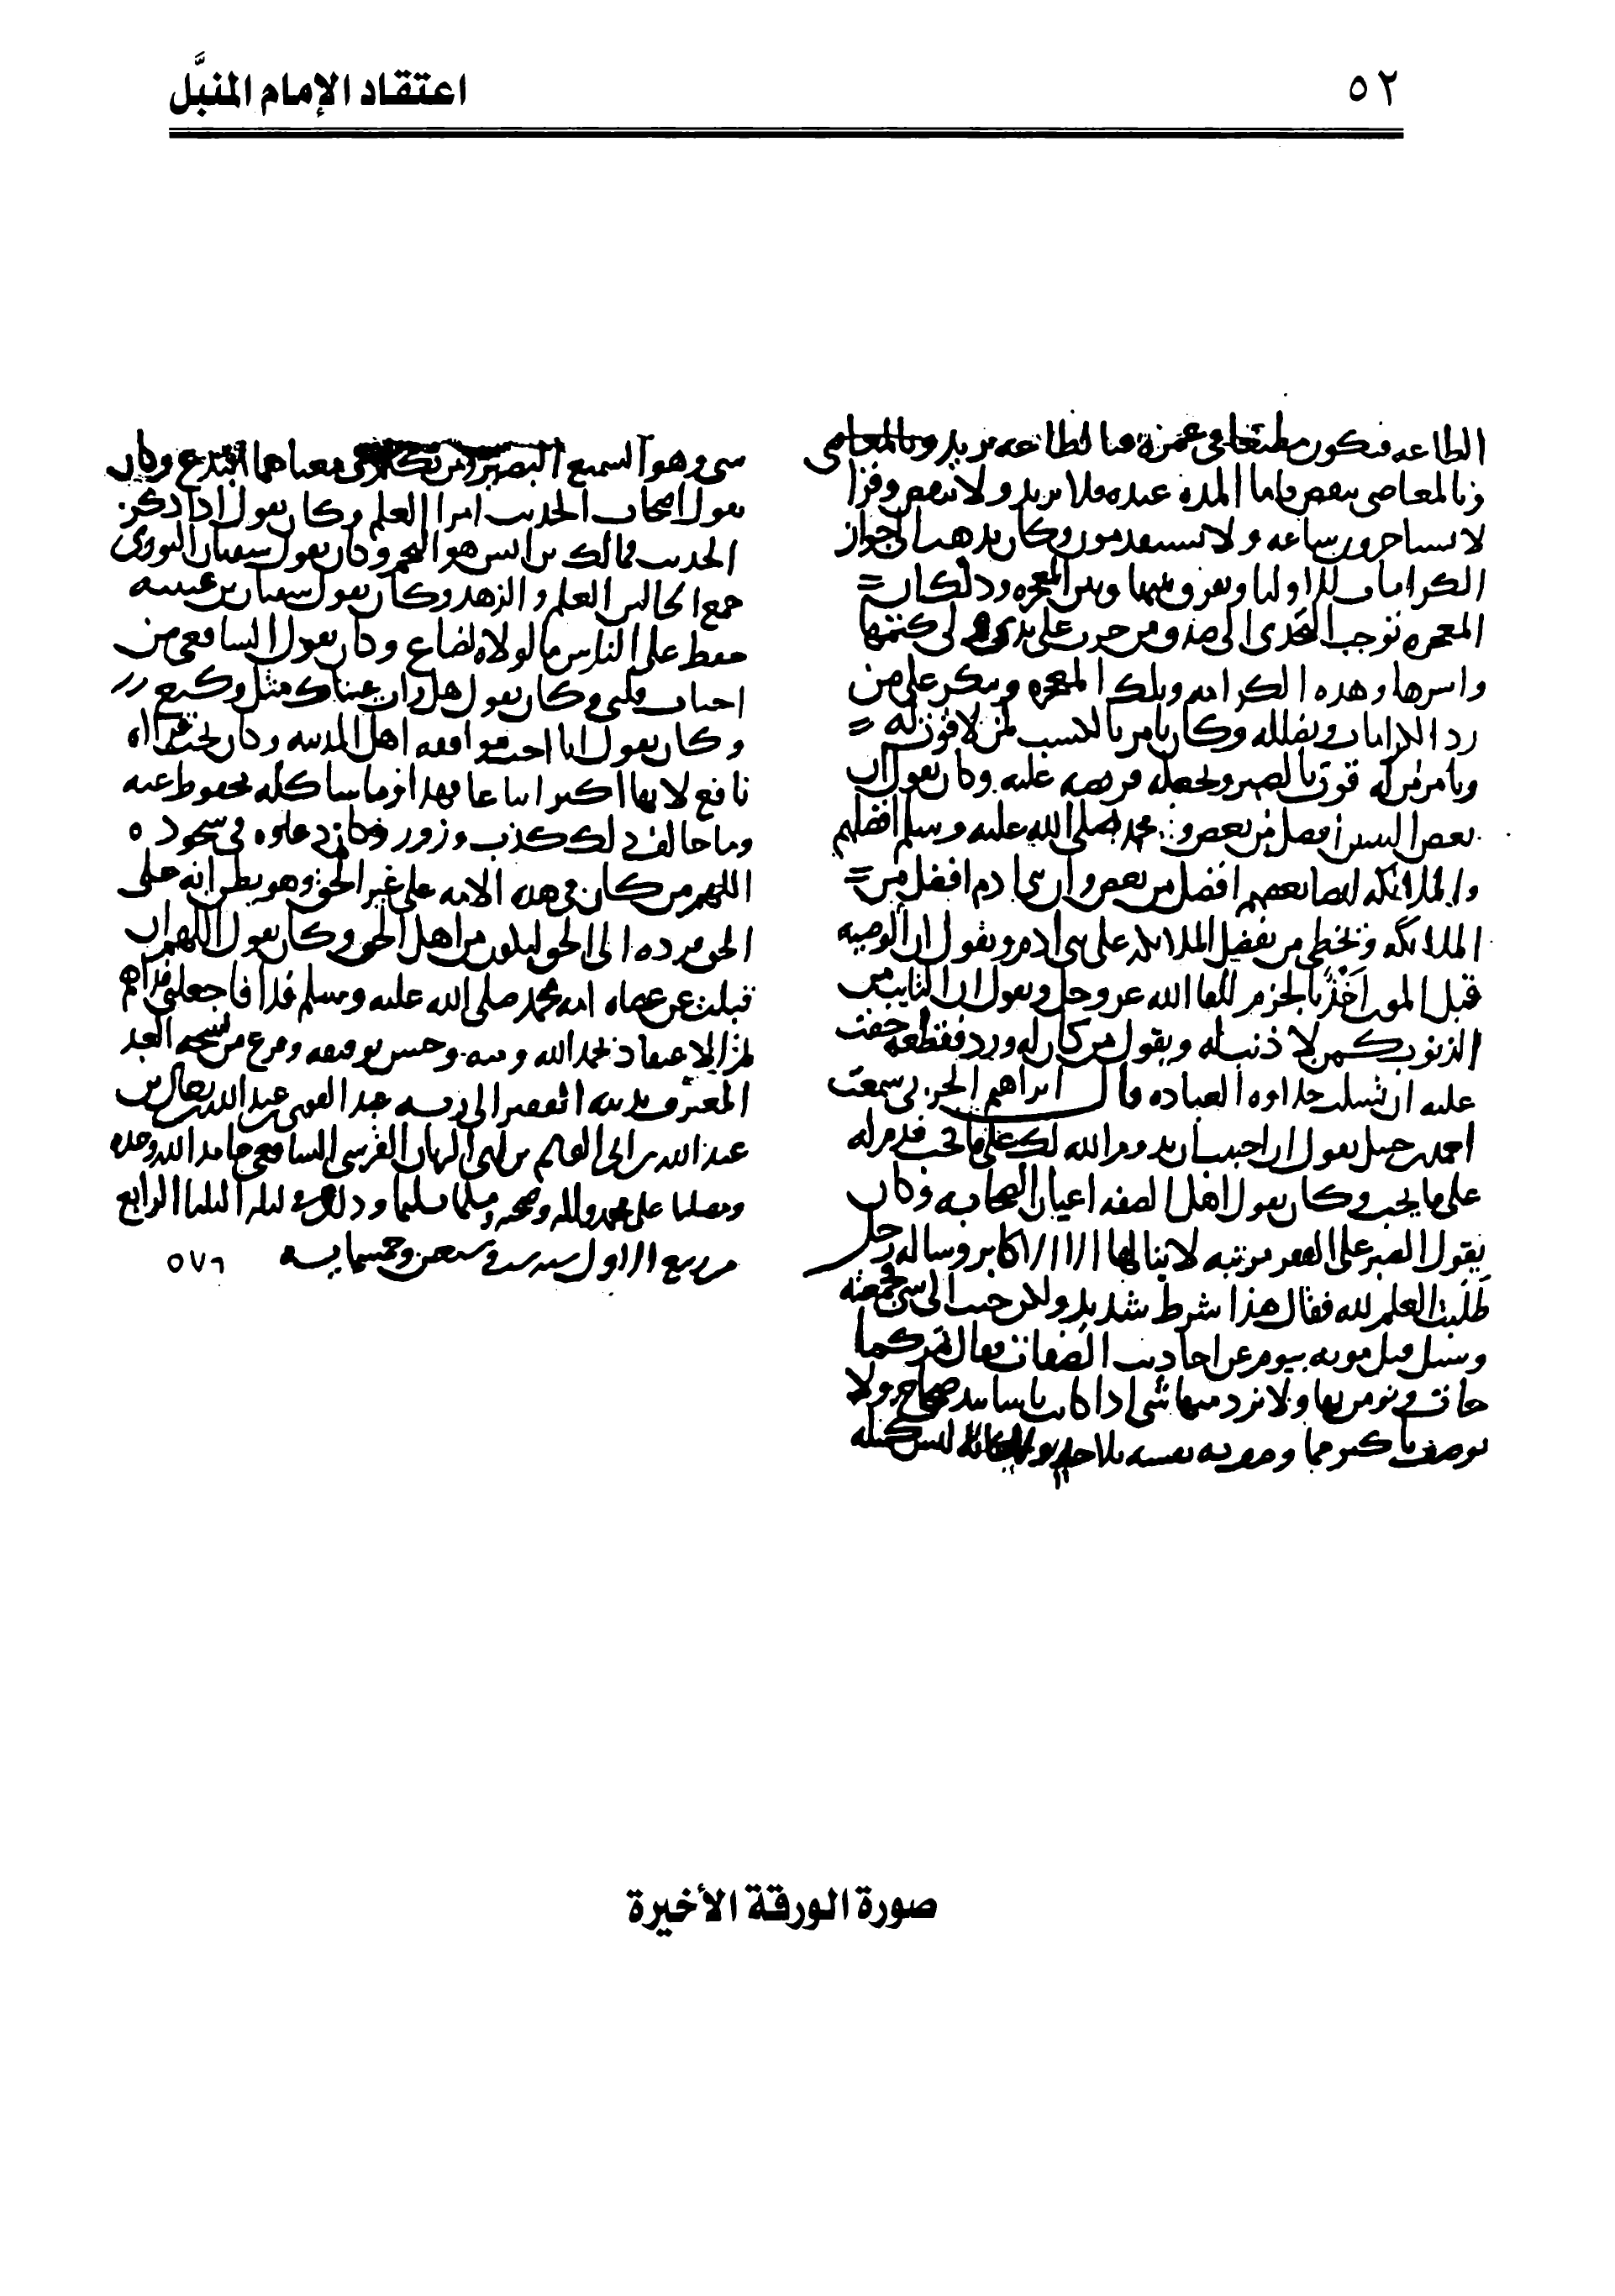 ٥٢
اعتقاد الإمام المنبَّل
الطاعه فيكون مطيعا في عمره فبالطاعه يزيد وبالمعاصي
وبالمعاصي ينقص واما المده عنده فلا تزيد ولا تنقص وقرا
لا يستاخرون ساعه ولا يستقدمون وكان يذهب الى جواز
الكرامات للاوليا ويفرق بينها وبين المعجزه وذلك ان
المعجزه توجب التحدي الى صدق من جرت على يدي ولي كتمها
واسرها وهذه الكرامه وتلك المعجزه وينكر على من
رد الكرامات ويضلله وكان يامر بالكسب لمن لا قوت له
ويامر من له قوت بالصبر ويجعله فريضه عليه وكان يقول ان
بعض النبيين افضل من بعض ومحمد صلى الله عليه وسلم افضلهم
والملائكه ايضا بعضهم افضل من بعض وان بني ادم افضل من
الملائكه ويخطي من يفضل الملائكه على بني ادم ويقول ان الوصيه
قبل الموت اخذ بالحزم للقا الله عز وجل ويقول ان التايب من
الذنوب كمن لا ذنب له ويقول من كان له ورد فقطعه خفت
عليه ان يسلب حلاوه العباده قال ابراهيم الحربي سمعت
احمد بن حنبل يقول ان احببت ان يدوم الله لك على ما تحب فدم له
على ما يحب وكان يقول اهل الصفه اعيان الصحابه وكان
يقول الصبر على الفقر مرتبه لا ينالها الا الاكابر وساله رجل
طلبت العلم لله فقال هذا شرط شديد ولكن حبب الي شي فجمعته
وسئل قبل موته بيوم عن احاديث الصفات فقال تمر كما
جات ويومن بها ولا يرد منها شي اذا كانت باسانيد صحاح ولا
يوصف باكثر مما وصف به نفسه بلا حد ولا غايه ليس كمثله
شي وهو السميع البصير ومن تكلم في معناها ابتدع وكان
يقول اصحاب الحديث امرا العلم وكان يقول اذا ذكر
الحديث فمالك بن انس هو النجم وكان يقول سفيان الثوري
جمع الحالين العلم والزهد وكان يقول سفيان بن عيينه
حفظ على الناس ما لولاه لضاع وكان يقول الشافعي من
احباب قلبي وكان يقول هل رات عيناك مثل وكيع
وكان يقول انا احب موافقه اهل المدينه وكان يحب قراه
نافع لانها اكثر اتباعا فهذا وما شاكله محفوظ عنه
وما خالف ذلك كذب وزور وكان دعاوه في سجوده
اللهم من كان من هذه الامه على غير الحق وهو يظن انه على
الحق فرده الى الحق ليكون من اهل الحق وكان يقول اللهم ان
قبلت عن عصاه امه محمد صلى الله عليه وسلم فدا فاجعلني فداهم
تم الاعتقاد بحمد الله ومنه وحسن توفيقه وفرغ من نسخه العبد
المعترف بذنبه الفقير الى ربه
عبد الله بن ابي القاسم بن ابي القرشي الشافعي حامدا لله وحده
ومصليا على محمد واله وصحبه ومسلما تسليما وذلك في ليله الثلثا الرابع
من ربيع الاول سنه ست وسبعين وخمسمايه ٥٧٦
صورة الورقة الأخيرة